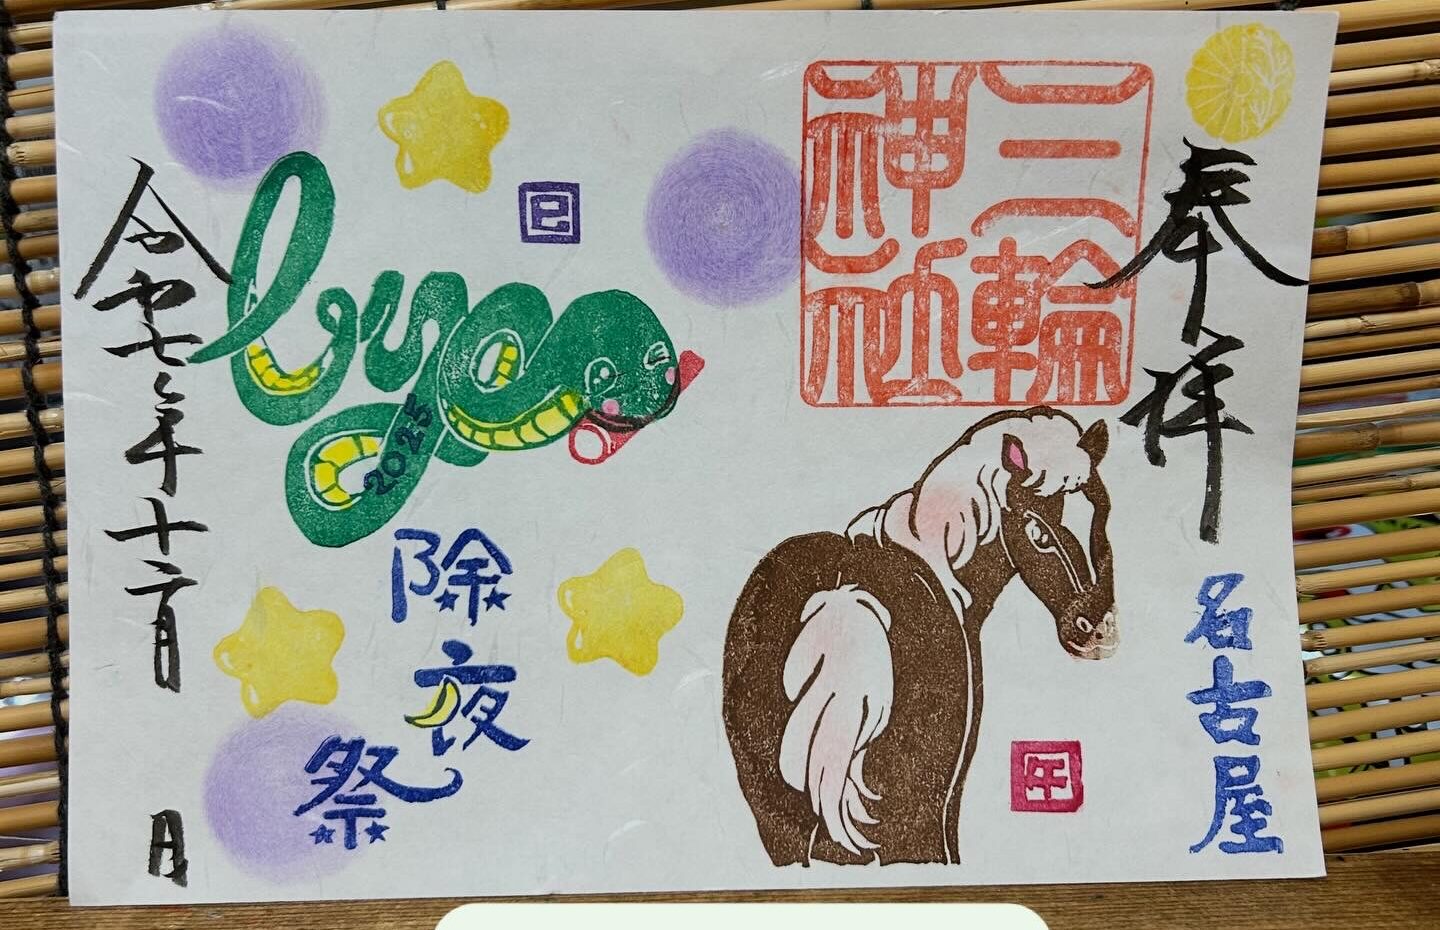 奉拝
三輪
神社
名古屋
午
巳
bye
2025
除夜
祭
令和七年十二月 日